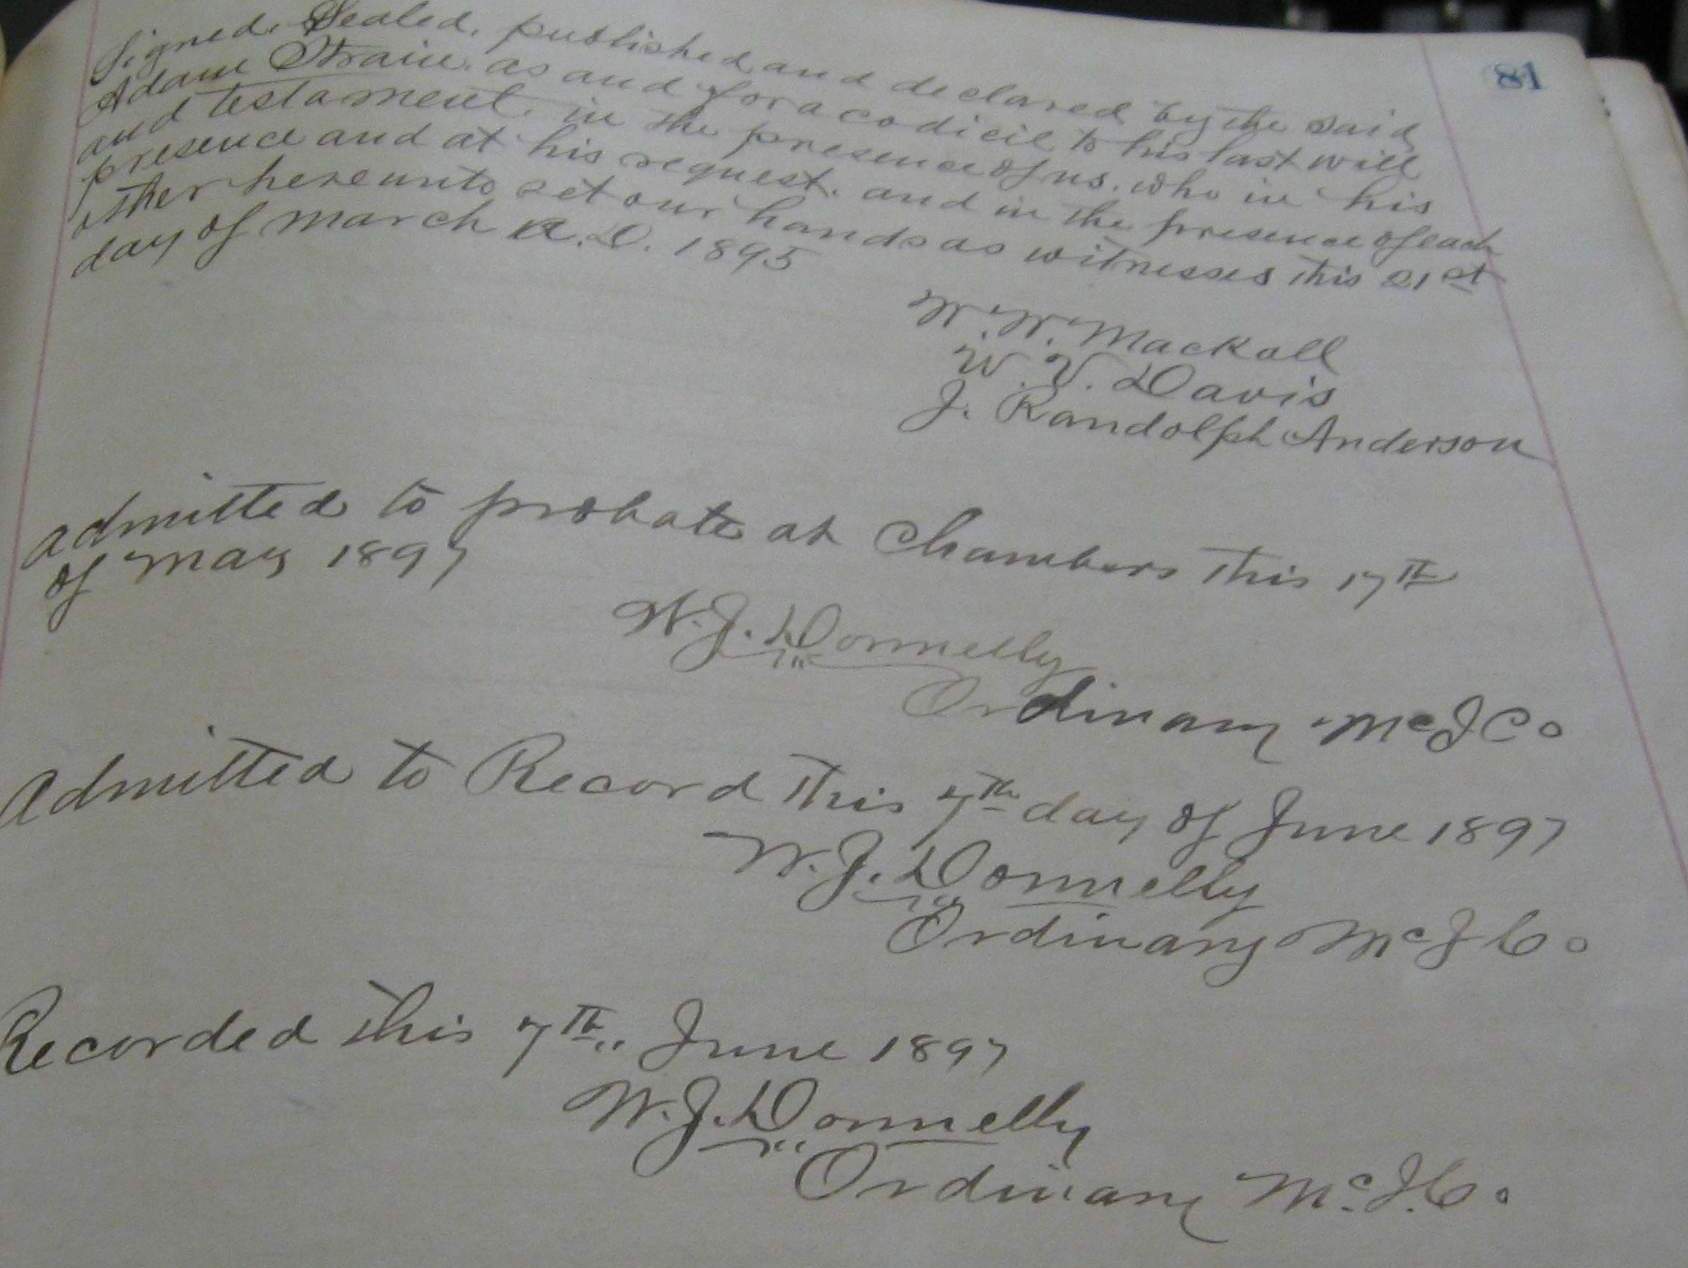 81
Signed, Sealed, published and declared by the said
Adam Strain as and for a codicil to his last will
and testament, in the presence of us, who in his
presence and at his request, and in the presence of each
other hereunto set our hands as witnesses this 21st
day of March A.D. 1895
W. W. Mackall
W. V. Davis
J. Randolph Anderson
Admitted to probate at Chambers this 17th
of May 1897
W. J. Donnelly
Ordinary McI Co
Admitted to Record this 7th day of June 1897
W. J. Donnelly
Ordinary McI Co
Recorded this 7th June 1897
W. J. Donnelly
Ordinary Mc.I. Co.